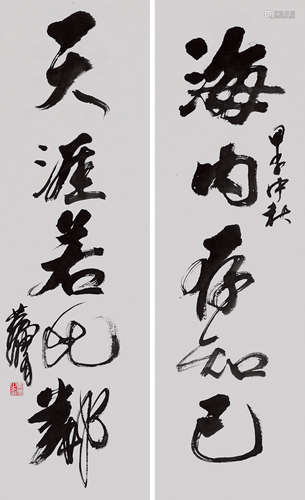 海内存知己
甲申中秋
天涯若比邻